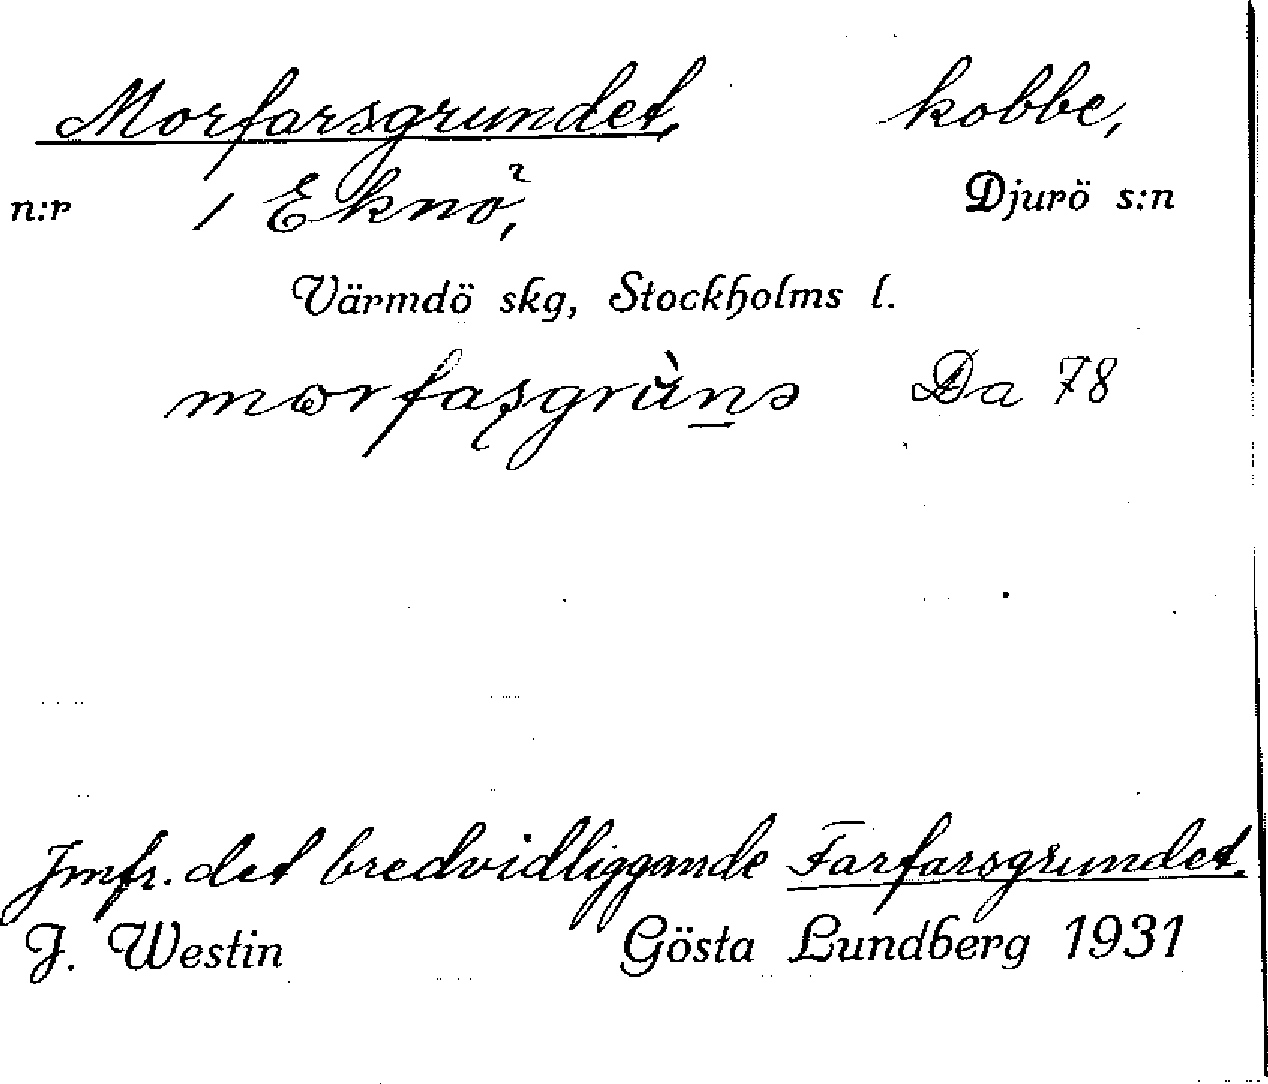 Morfarsgrundet, kobbe,
n:r 1 Eknö², Djurö s:n
Värmdö skg, Stockholms l.
mɷrfaʂgrùn̲ə Da 78
Jmfr. det bredvidliggande Farfarsgrundet.
J. Westin Gösta Lundberg 1931